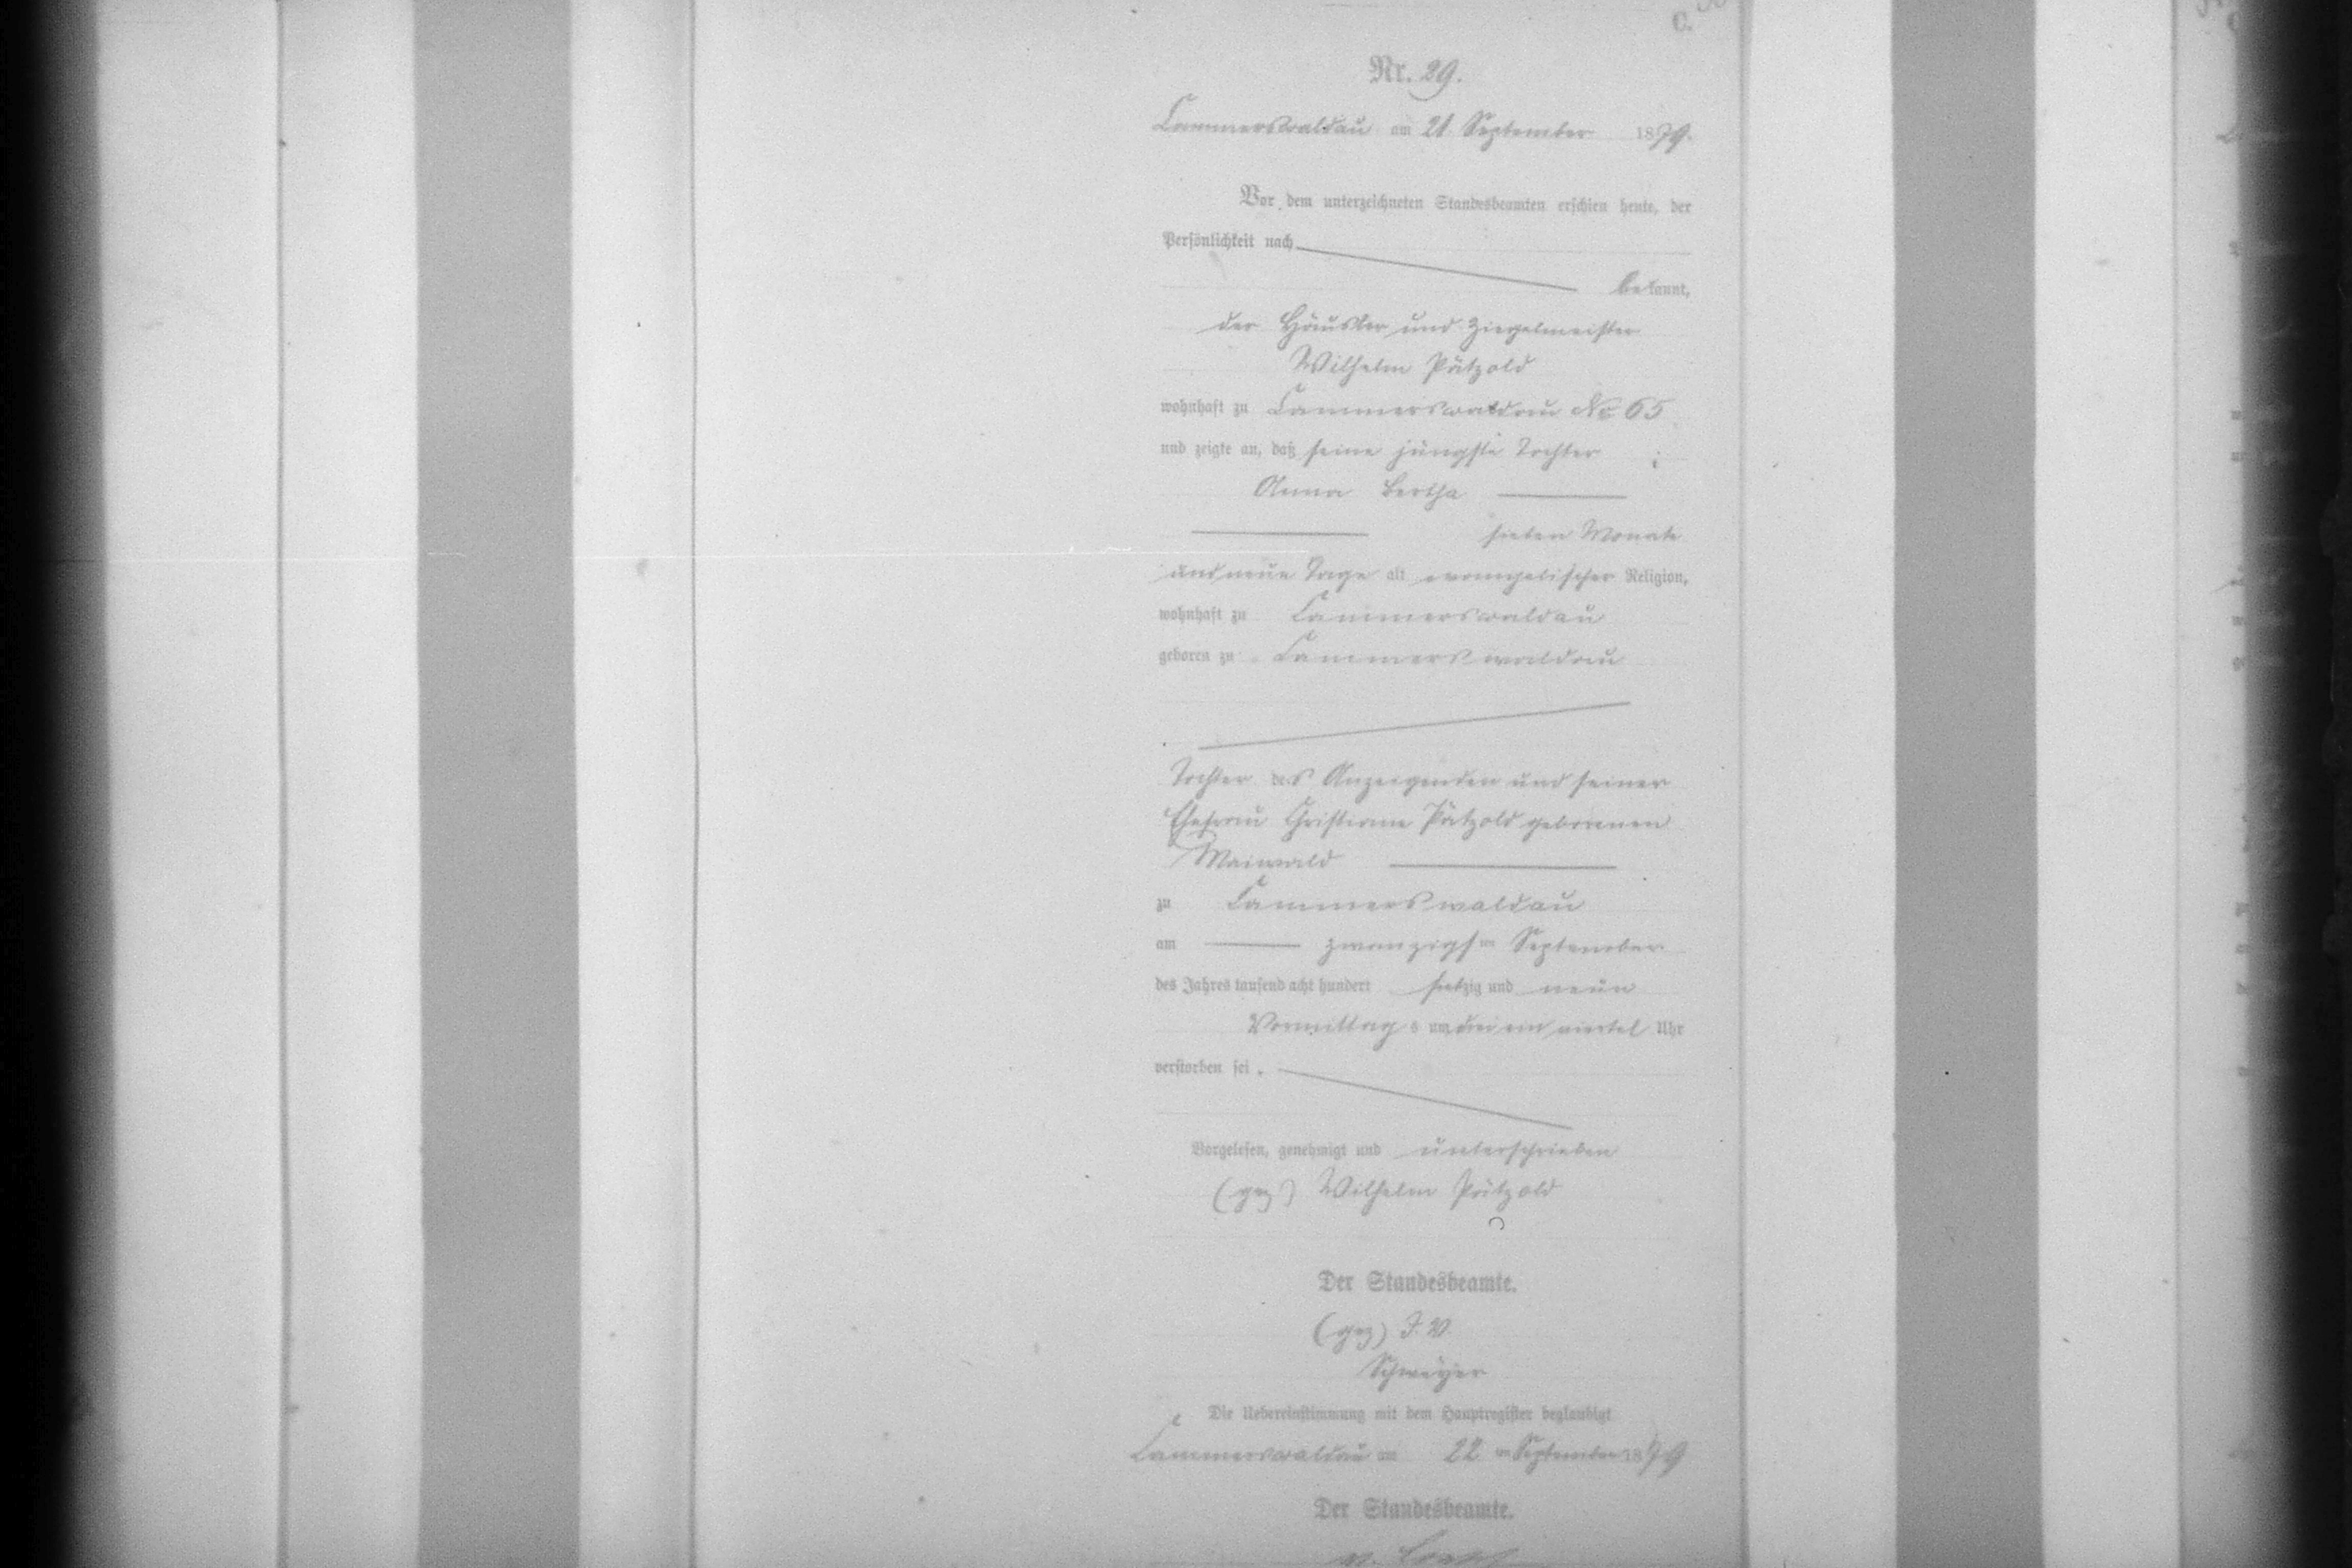 C.
Nr. 29.
Cammerswaldau am 21 September 1879.
Vor dem unterzeichneten Standesbeamten erschien heute, der
Persönlichkeit nach
bekannt,
der Häusler und Ziegelmeister
Wilhelm Pätzold
wohnhaft zu Cammerswaldau No 65
und zeigte an, daß seine jüngste Tochter
Anna Bertha
sieben Monate
und neun Tage alt evangelischer Religion,
wohnhaft zu Cammerswaldau
geboren zu Cammerswaldau
Tochter des Anzeigenden und seiner
Ehefrau Christiane Pätzold geborenen
Maiwald
zu Cammerswaldau
am zwanzigsten September
des Jahres tausend acht hundert siebzig und neun
Vormittags um drei ein viertel Uhr
verstorben sei.
Vorgelesen, genehmigt und unterschrieben
(gez) Wilhelm Pätzold
Der Standesbeamte.
(gez) I. V.
Die Uebereinstimmung mit dem Hauptregister beglaubigt
Cammerswaldau am 22 ten September 1879
Der Standesbeamte.